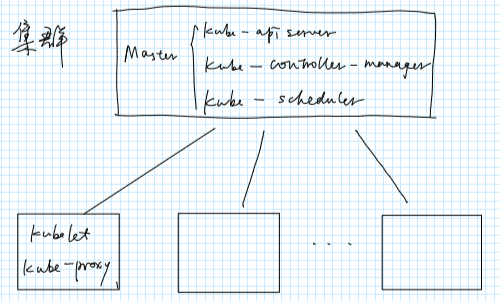 集群
Master
kube-api server
kube-controller-manager
kube-scheduler
kubelet
kube-proxy
....